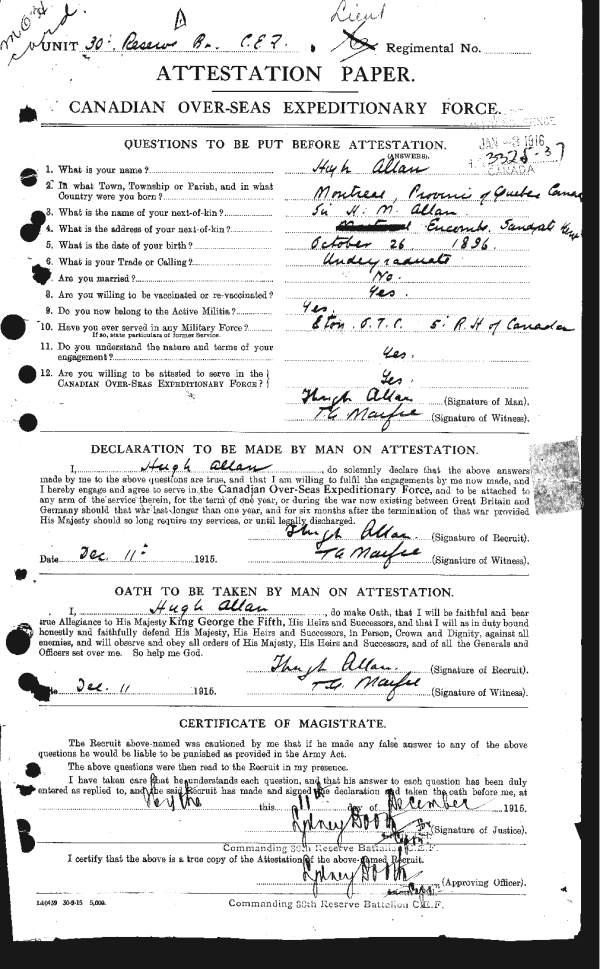 Lieut
M.O.H
card.
UNIT 30th Reserve Bn. C.E.F. Regimental No.
ATTESTATION PAPER.
CANADIAN OVER-SEAS EXPEDITIONARY FORCE.
QUESTIONS TO BE PUT BEFORE ATTESTATION.
(ANSWERS).
JAN -3 1916
3325-37
CANADA
1. What is your name? Hugh Allan
2. In what Town, Township or Parish, and in what Country were you born? Montreal, Province of Quebec Canada
3. What is the name of your next-of-kin? Sir H. M. Allan
4. What is the address of your next-of-kin? Encombe, Sandgate Kent
5. What is the date of your birth? October 26 1896
6. What is your Trade or Calling? Undergraduate
7. Are you married? No.
8. Are you willing to be vaccinated or re-vaccinated? Yes.
9. Do you now belong to the Active Militia? Yes.
10. Have you ever served in any Military Force? Eton O.T.C. 5: R.H of Canada
If so, state particulars of former Service.
11. Do you understand the nature and terms of your engagement? Yes.
12. Are you willing to be attested to serve in the CANADIAN OVER-SEAS EXPEDITIONARY FORCE? Yes
Hugh Allan (Signature of Man)
(Signature of Witness).
DECLARATION TO BE MADE BY MAN ON ATTESTATION.
I, Hugh Allan, do solemnly declare that the above answers
made by me to the above questions are true, and that I am willing to fulfil the engagements by me now made, and
I hereby engage and agree to serve in the Canadian Over-Seas Expeditionary Force, and to be attached to
any arm of the service therein, for the term of one year, or during the war now existing between Great Britain and
Germany should that war last longer than one year, and for six months after the termination of that war provided
His Majesty should so long require my services, or until legally discharged.
Hugh Allan. (Signature of Recruit)
Date Dec. 11th 1915. (Signature of Witness)
OATH TO BE TAKEN BY MAN ON ATTESTATION.
I, Hugh Allan, do make Oath, that I will be faithful and bear
true Allegiance to His Majesty King George the Fifth, His Heirs and Successors, and that I will as in duty bound
honestly and faithfully defend His Majesty, His Heirs and Successors, in Person, Crown and Dignity, against all
enemies, and will observe and obey all orders of His Majesty, His Heirs and Successors, and of all the Generals and
Officers set over me. So help me God.
Hugh Allan. (Signature of Recruit)
Dec. 11 1915. (Signature of Witness)
CERTIFICATE OF MAGISTRATE.
The Recruit above-named was cautioned by me that if he made any false answer to any of the above
questions he would be liable to be punished as provided in the Army Act.
The above questions were then read to the Recruit in my presence.
I have taken care that he understands each question, and that his answer to each question has been duly
entered as replied to, and the said Recruit has made and signed the declaration and taken the oath before me, at
Hythe this 11th day of December 1915.
Sydney Booth (Signature of Justice)
Commanding 30th Reserve Battalion C.E.F.
I certify that the above is a true copy of the Attestation of the above-named Recruit.
Sydney Booth (Approving Officer).
Commanding 30th Reserve Battalion C.E.F.
1A0439 30-9-15 5,000.